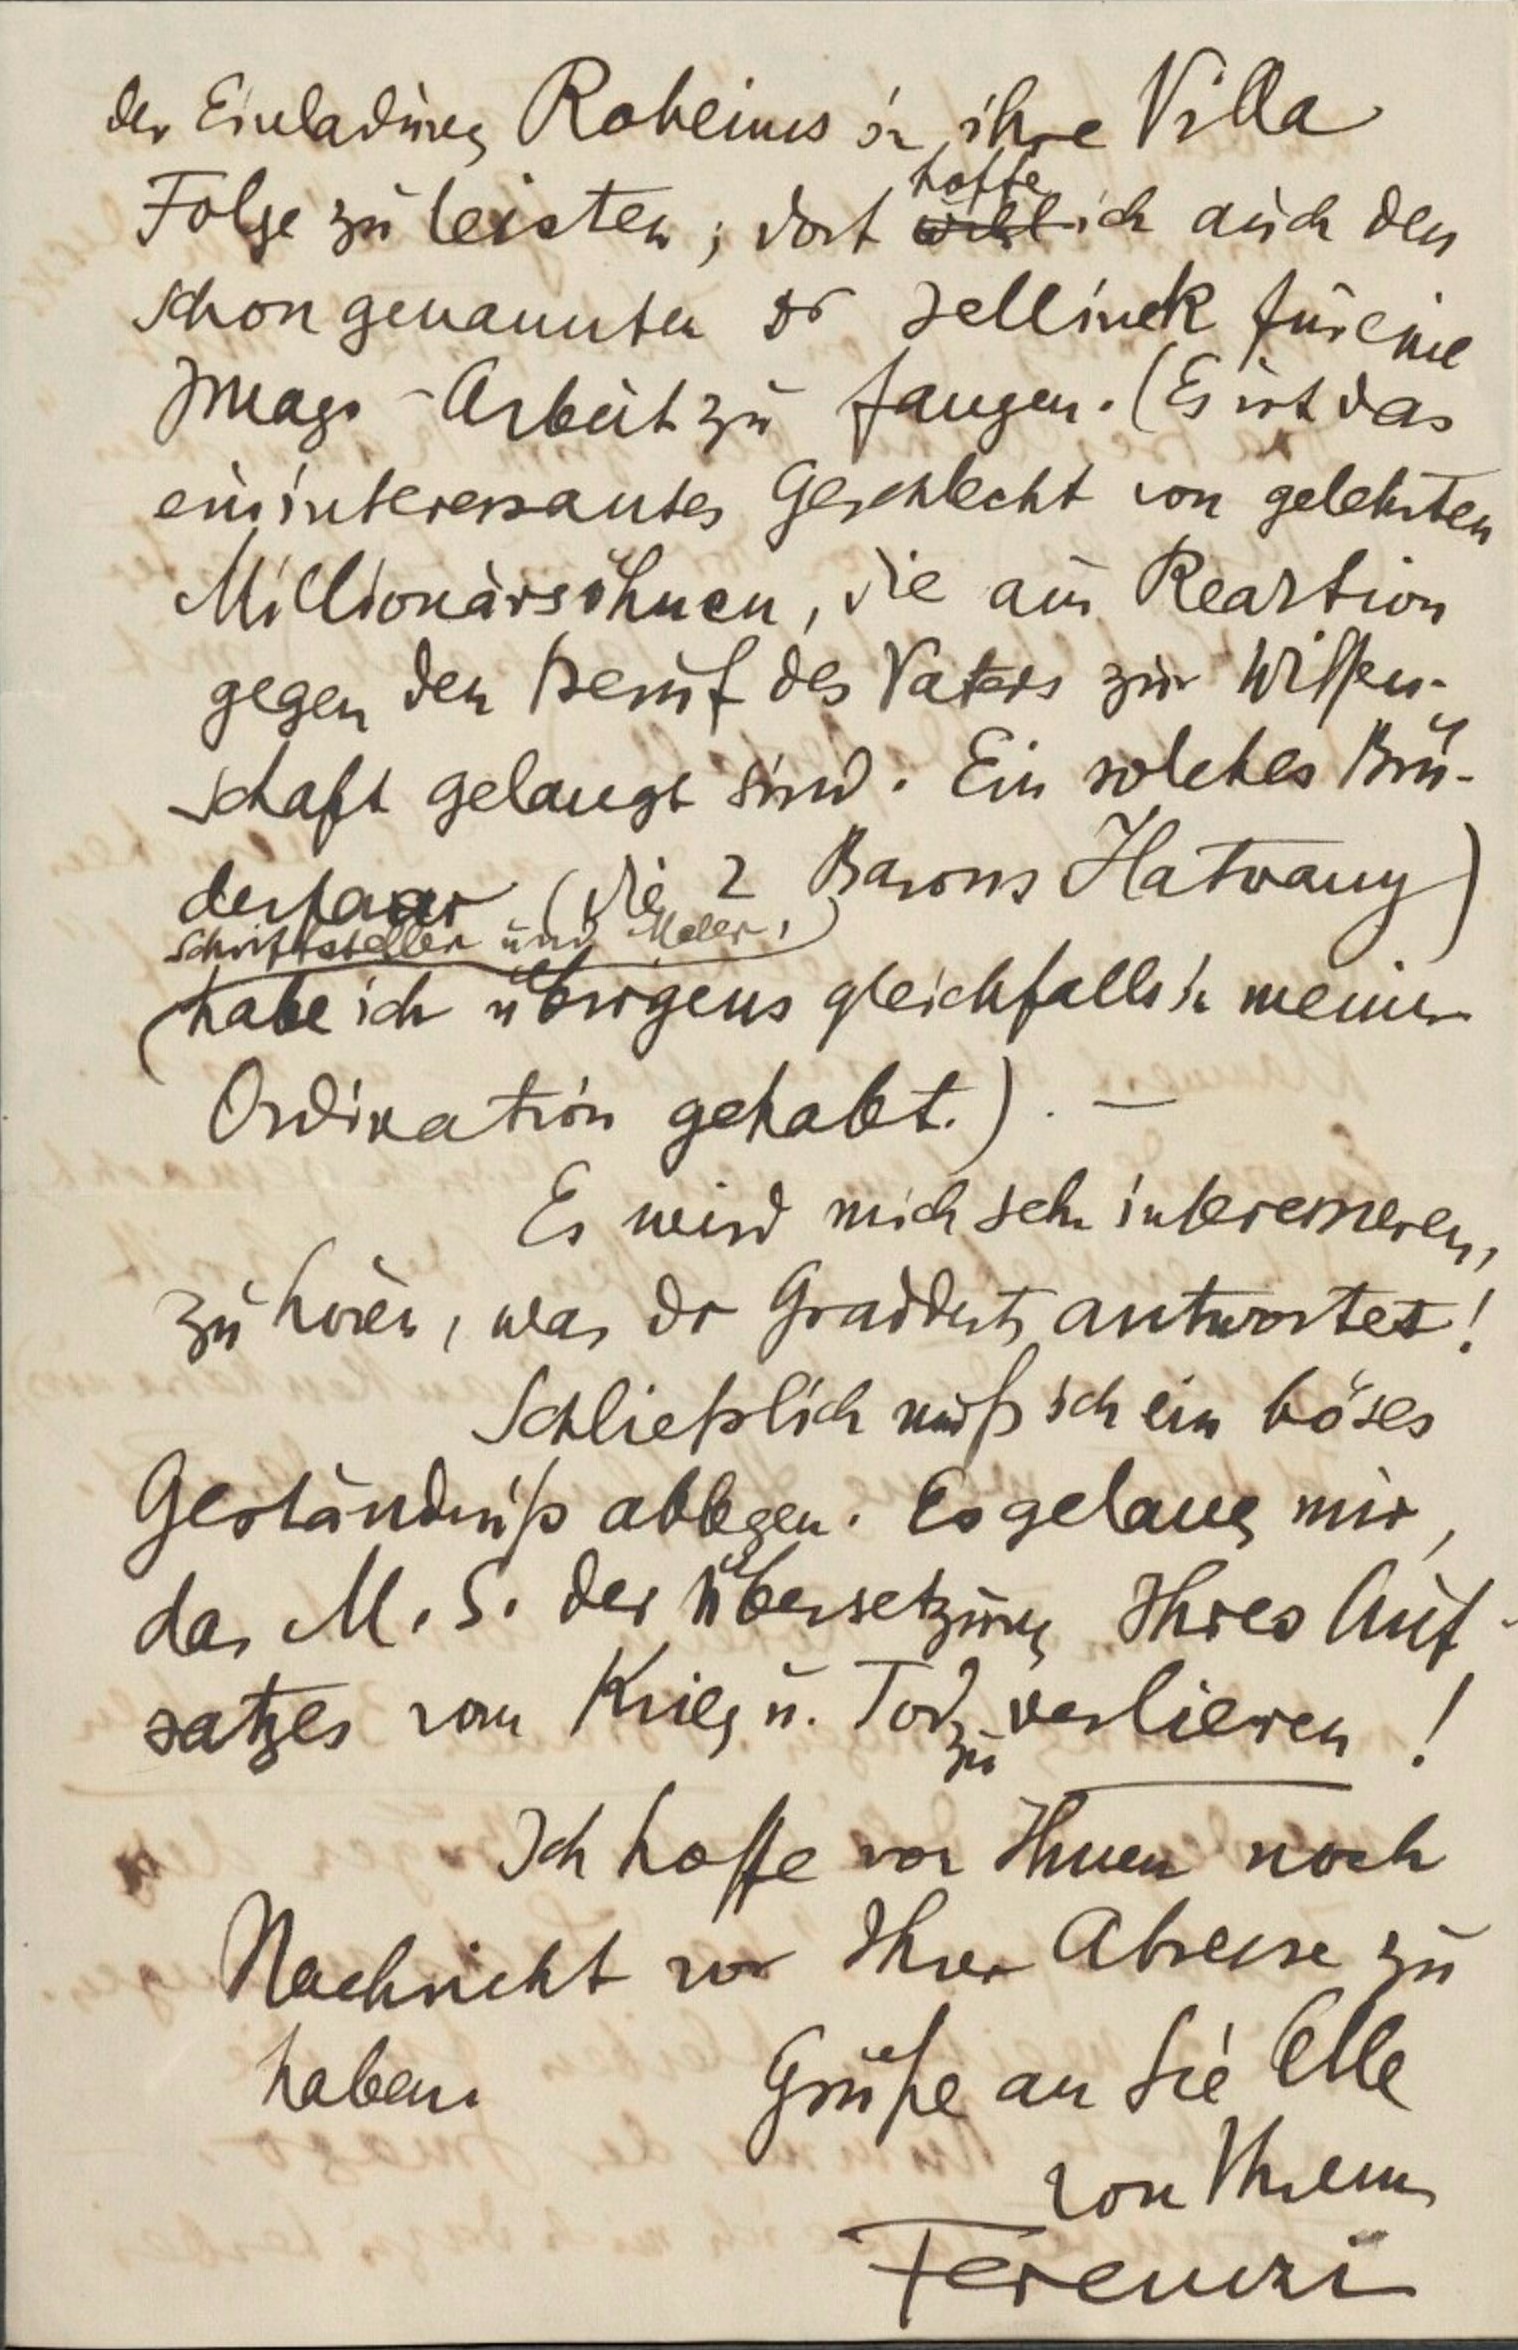 der Einladung Roheims in ihre Villa
Folge zu leisten; dort hoffe ich auch den
schon genannten Dr Jellinek für eine
Imago-Arbeit zu fangen. (Es ist das
ein interessantes Geschlecht von gelehrten
Millionärsöhnen, die aus Reaktion
gegen den Beruf des Vaters zur Wissen-
schaft gelangt sind. Ein solches Brü-
derpaar (die 2 Barons Hatvany)
Schriftsteller und Maler,)
(habe ich übrigens gleichfalls in meiner
Ordination gehabt.). —
Es wird mich sehr interessieren,
zu hören, was Dr Graddert antwortet!
Schließlich muß ich ein böses
Geständniß ablegen. Es gelang mir,
das M.S. der Übersetzung Ihres Auf-
satzes vom Krieg u. Tod zu verlieren!
Ich hoffe von Ihnen noch
Nachricht vor Ihrer Abreise zu
haben. Grüße an Sie Alle
von Ihrem
Ferenczi